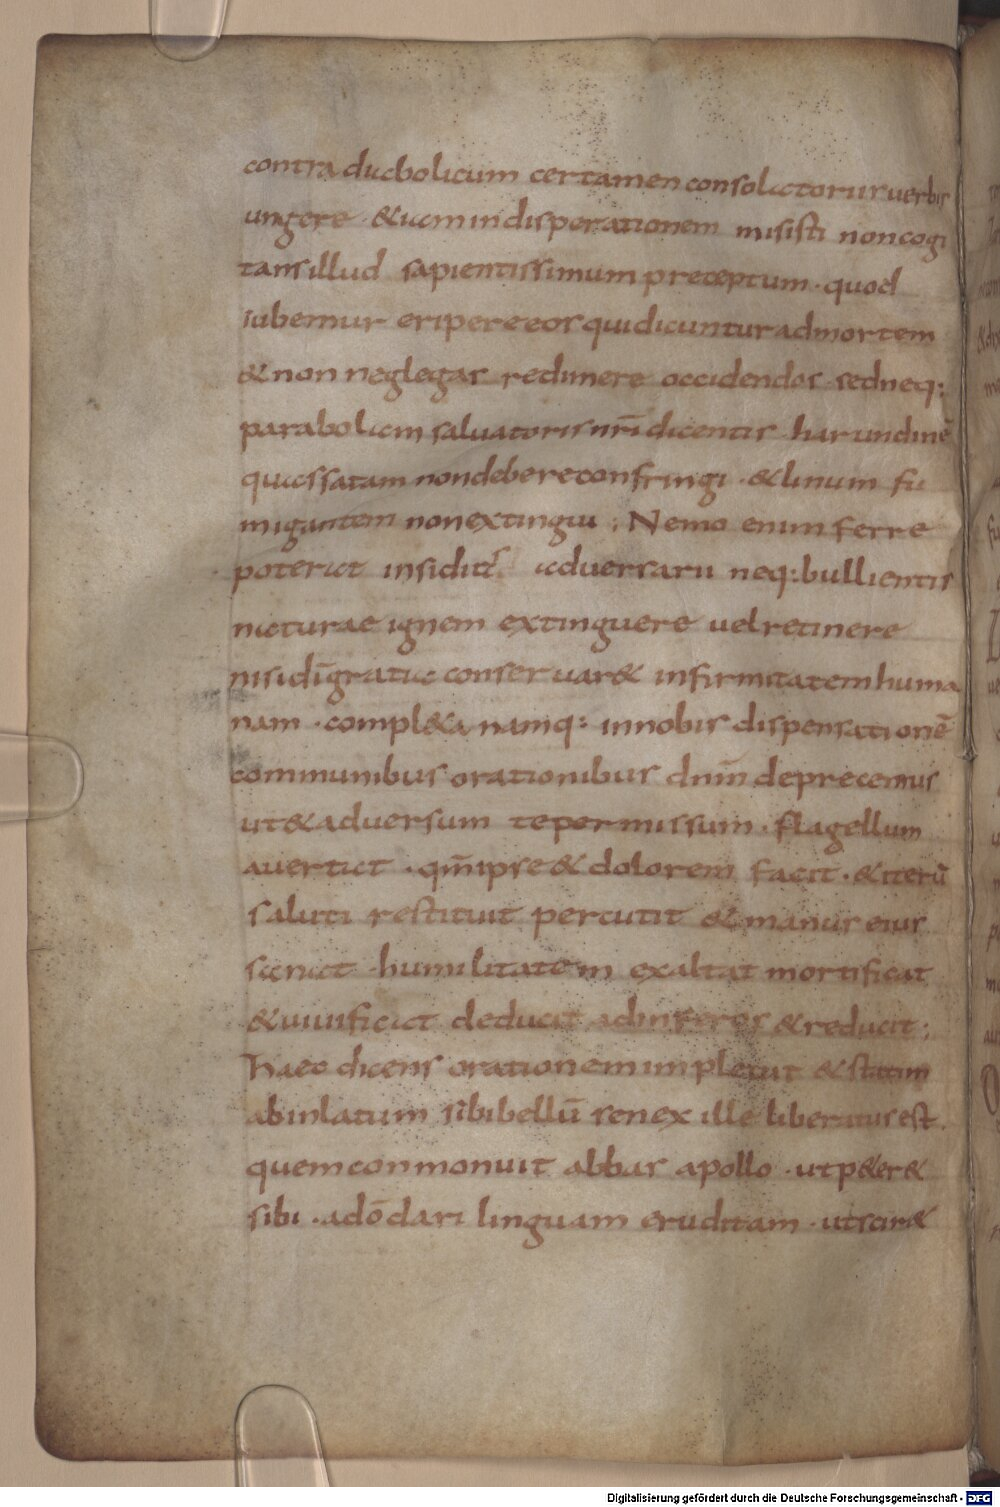 contra diabolicum certamen consolatoriir uerbir
ungere · &iam in disperationem misisti non cogi
tans illud sapientissimum preceptum · quod
iubemur eripere eos qui dicuntur ad mortem
& non neglegas redimere occidendos · sed neq:
parabolam saluatoris nr̄i dicentis · harundinē
quassatam non debere confringi · & linum fu
migantem non extingui ; Nemo enim ferre
poterat insidias aduersarii neq: bullientis
naturae ignem extinguere uel retinere
nisi dī gratia conseruar& infirmitatem huma
nam · compl&a namq: in nobis dispensationē
communibus orationibus dnm̄ deprecemus
ut & aduersum te permissum · flagellum
auertat · qm̄ ipse & dolorem facit · & iterū
saluti restituit percutit & manus eius
sanat · humilitatem exaltat mortificat
& uiuificat deducit ad inferos & reducit ;
haec dicens orationem impleuit & statim
ab inlatum sibi bellū senex ille liberatus est .
quem conmonuit abbas apollo · ut p&er&
sibi · a dō dari linguam eruditam · ut scir&
Digitalisierung gefördert durch die Deutsche Forschungsgemeinschaft - DFG